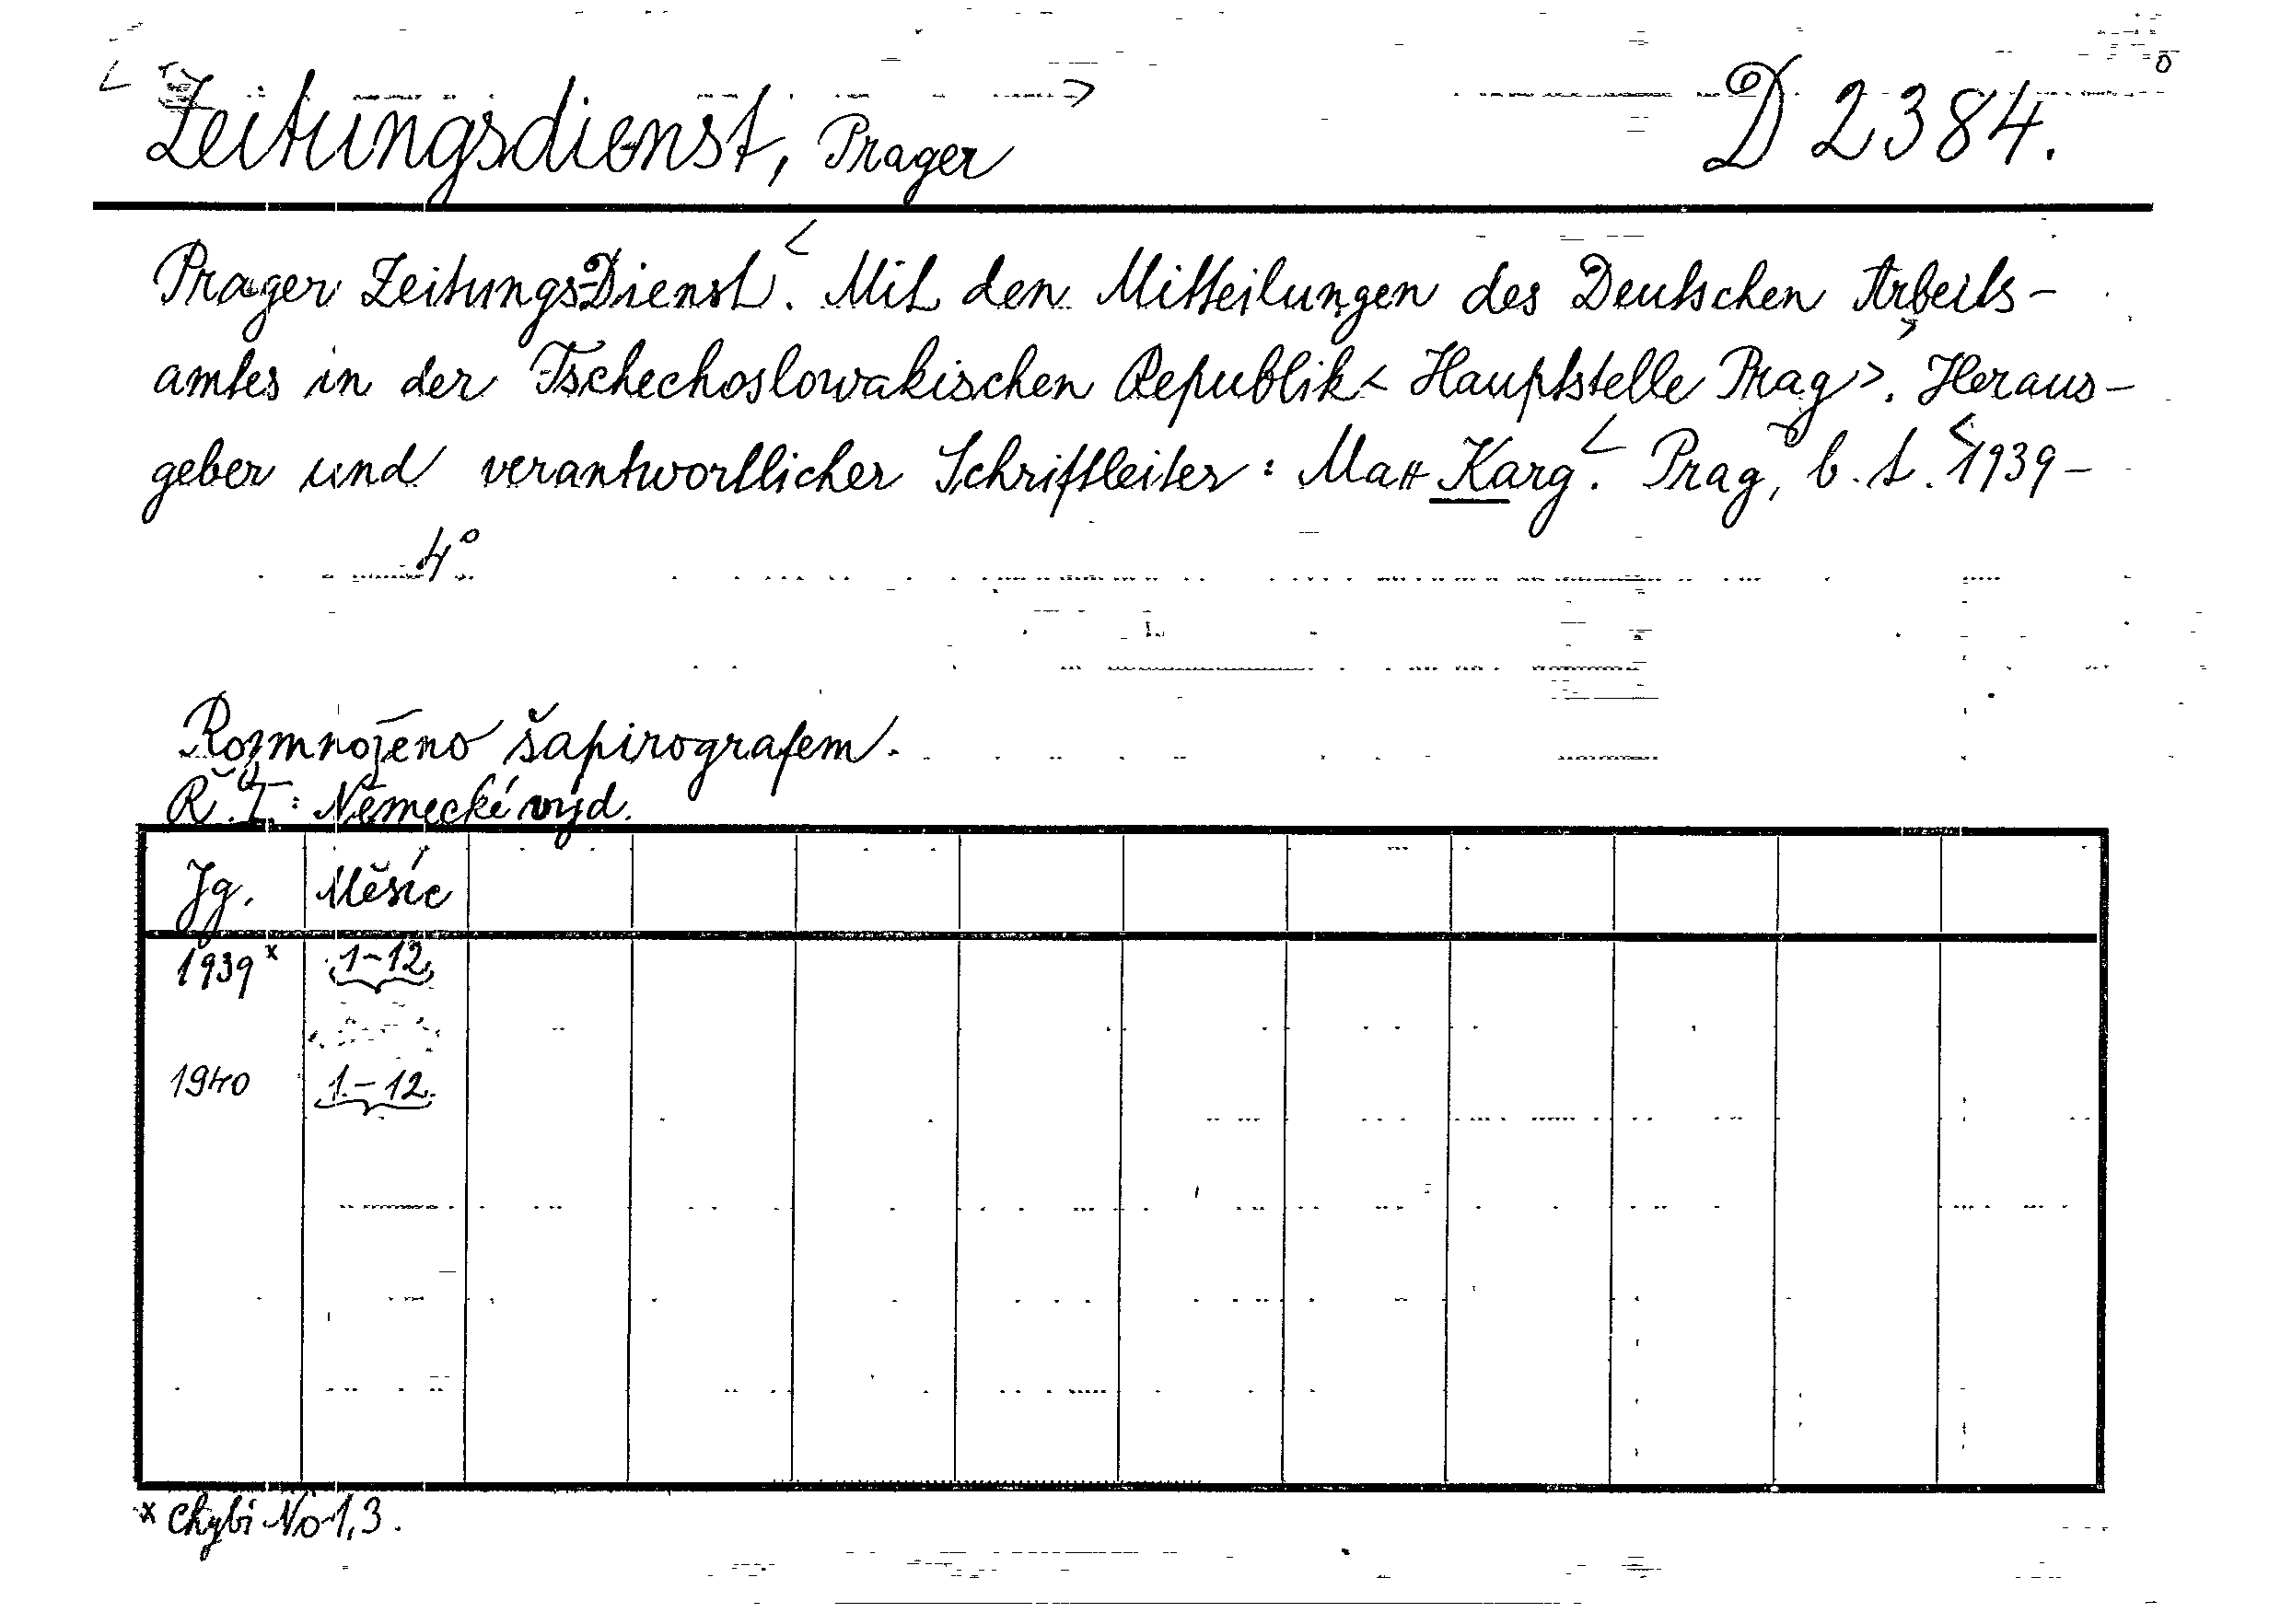 < Zeitungsdienst, Prager > D 2384.
Prager Zeitungs-Dienst. Mit den Mitteilungen des Deutschen Arbeits-
amtes in der Tschechoslowakischen Republik < Hauptstelle Prag >. Heraus-
geber und verantwortlicher Schriftleiter: Max Karg. Prag, b. t. <1939-
4°
Rozmnoženo šapirografem.
Německé vyd.
Jg. Měsíc
1939 x 1-12
1940 1.-12.
x Chybí No 1,3.